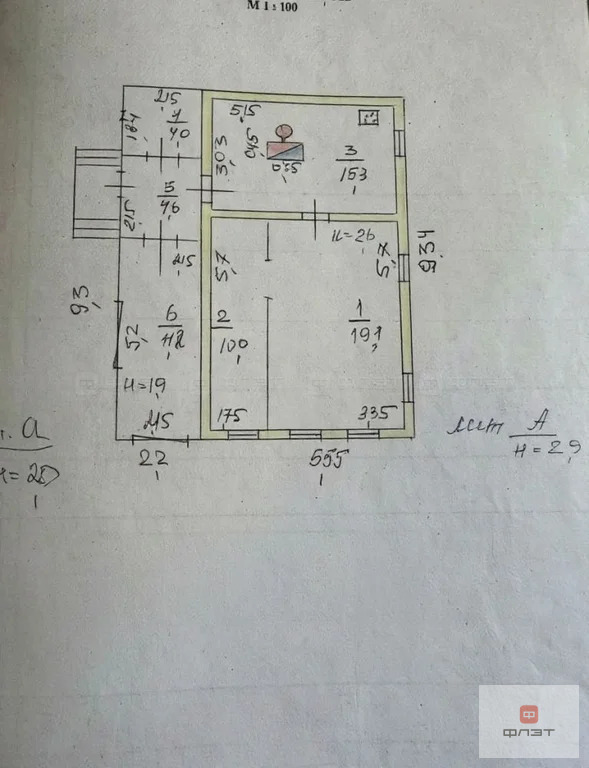 М 1 : 100
215
515
4
4,0
184
3,03
0,45
0,55
3
15,3
5
4,6
2,15
н=2,6
5,7
5,7
9,34
2,15
9,3
6
5,2
2
10,0
1
19,1
н=1,9
1,75
3,35
2,15
лит А
н=2,9
а
2,2
5,55
ФЛЭТ